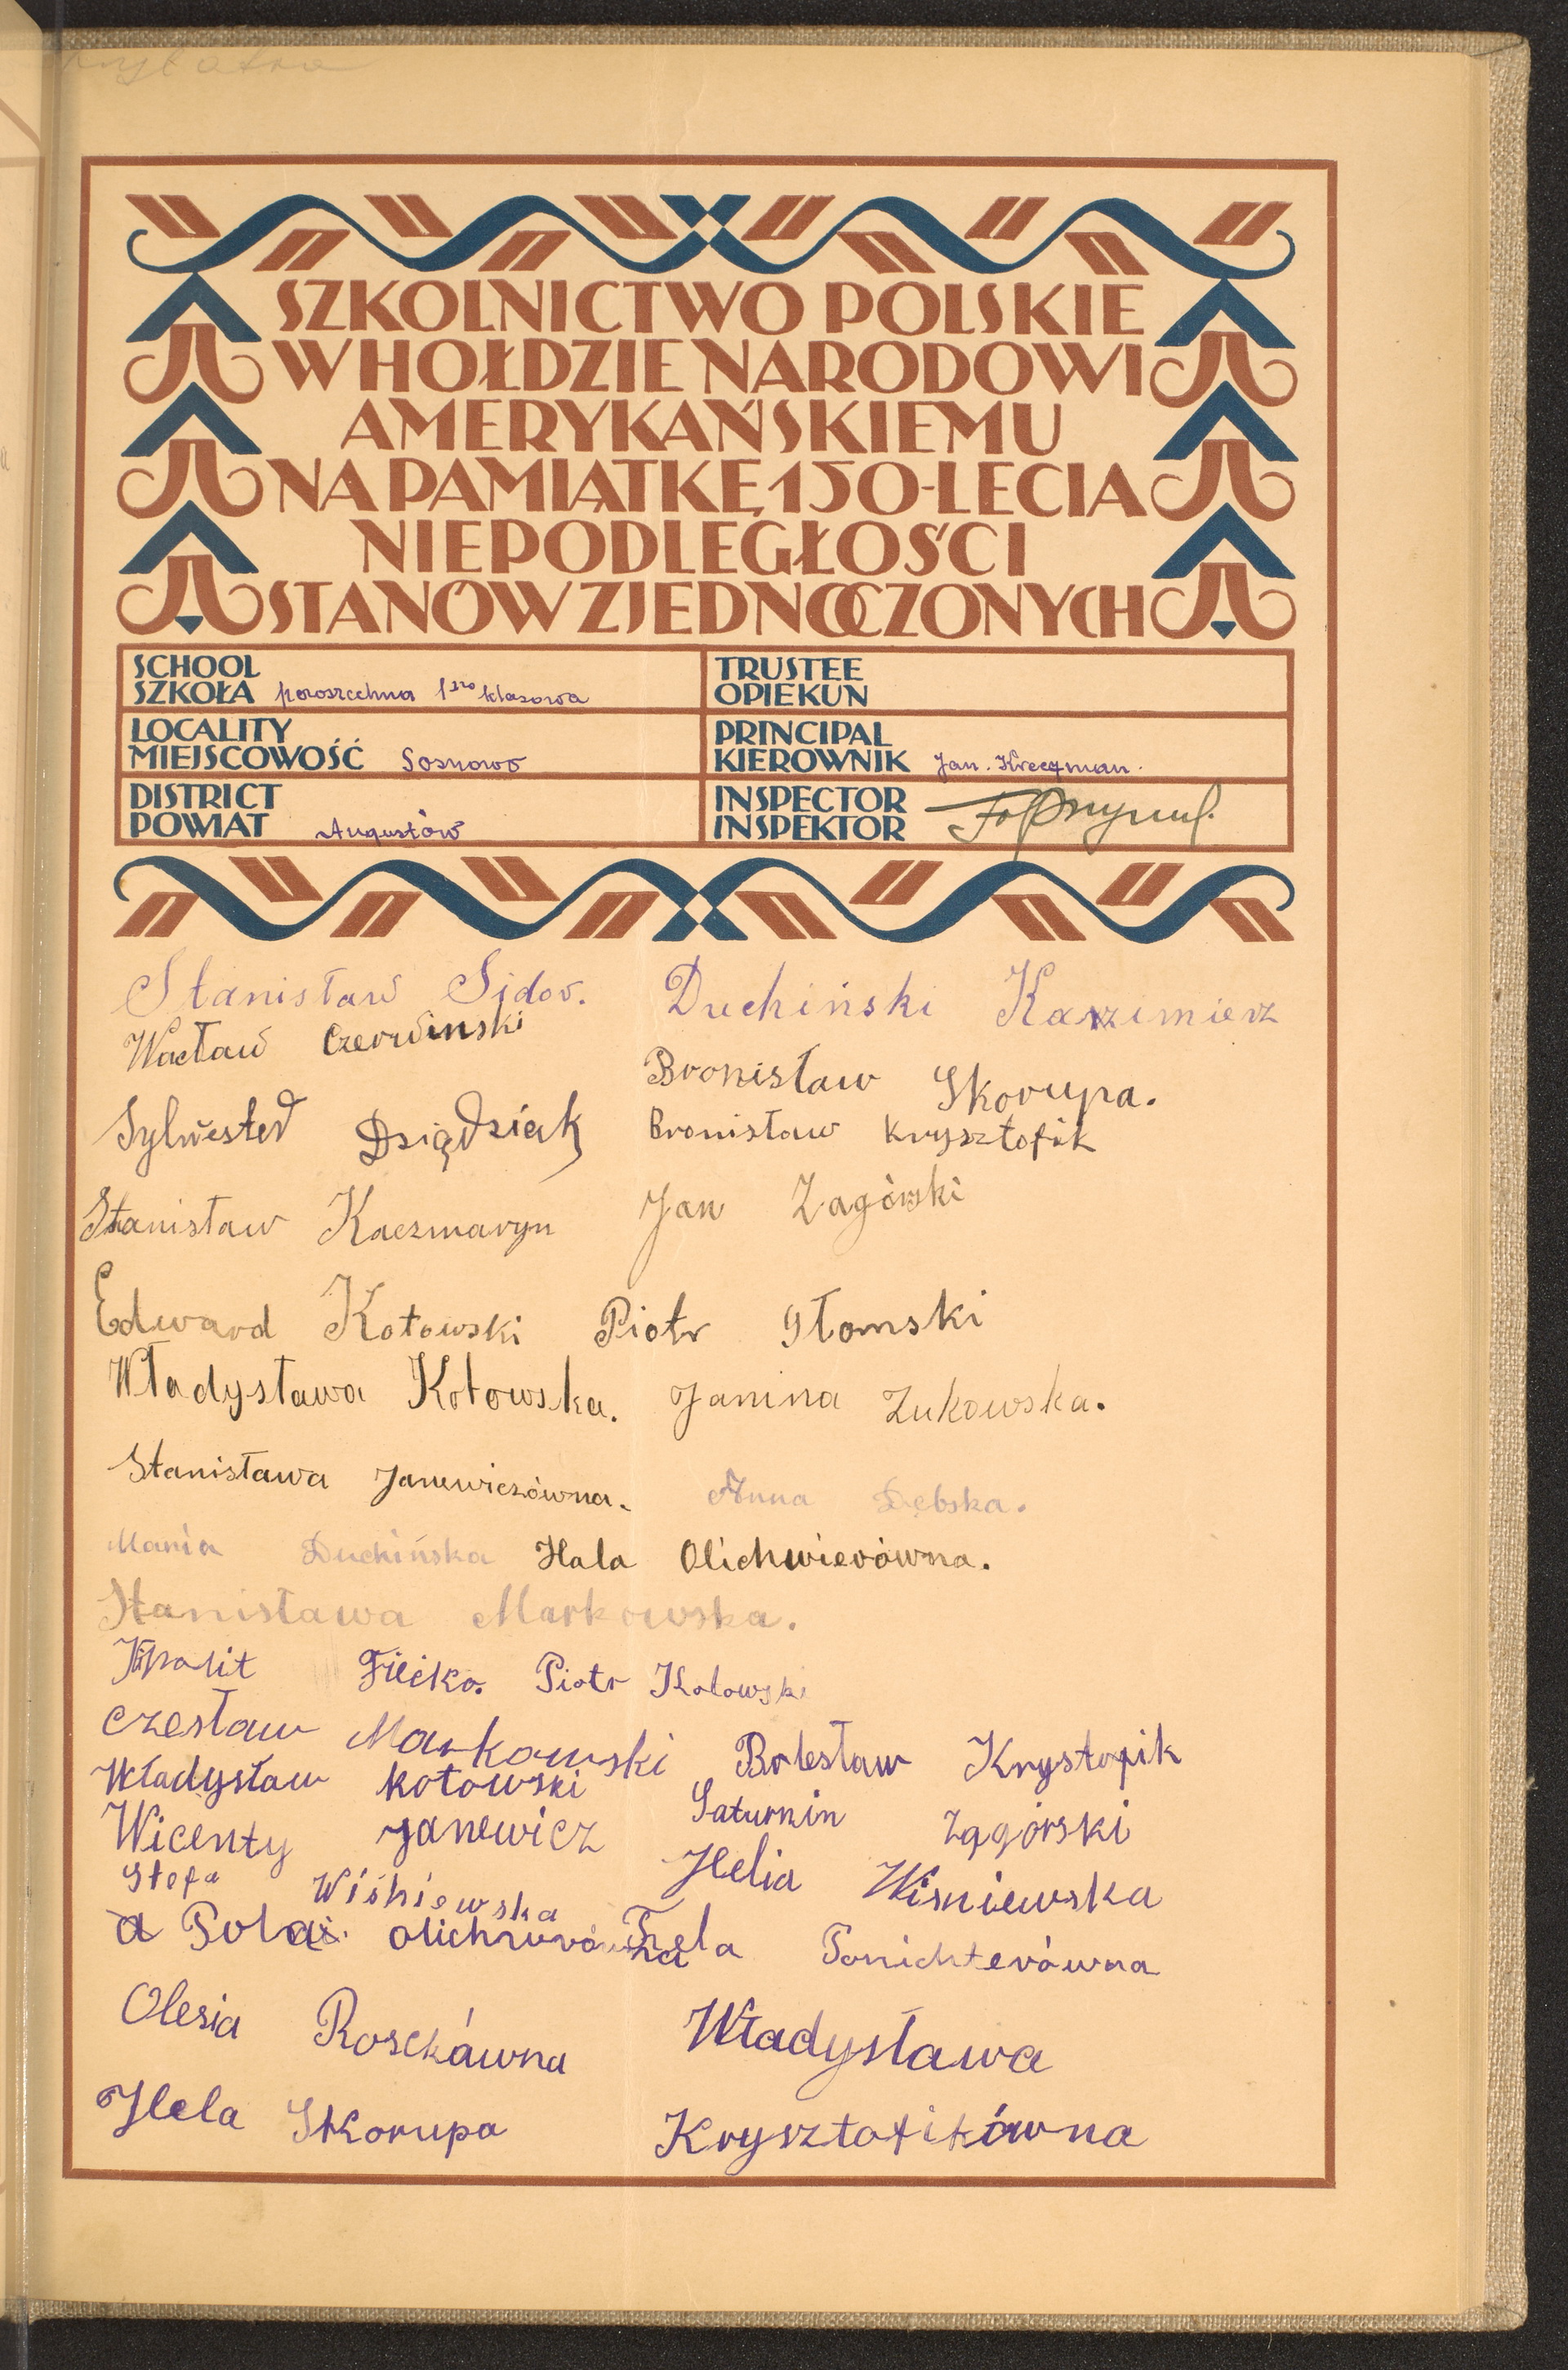 SZKOLNICTWO POLSKIE
W HOŁDZIE NARODOWI
AMERYKAŃSKIEMU
NA PAMIĄTKĘ 150-LECIA
NIEPODLEGŁOŚCI
STANÓW ZJEDNOCZONYCH
SCHOOL
SZKOŁA powszechna 1no klasowa
TRUSTEE
OPIEKUN
LOCALITY
MIEJSCOWOŚĆ Sosnowo
PRINCIPAL
KIEROWNIK Jan. Kreczman.
DISTRICT
POWIAT Augustów
INSPECTOR
INSPEKTOR
Stanisław Sidor. Duchiński Kazimierz
Wacław Czerwinski
Bronisław Skorupa.
Sylwester Dziądziak Bronisław Krysztofik
Stanisław Kaczmaryn Jan Zagórski
Edward Kotowski Piotr Słomski
Władysława Kotowska. Janina Zukowska.
Stanisława Janewiczówna. Anna Dębska.
Mania Duchińska Hala Olichwierówna.
Stanisława Markowska.
Filicka. Piotr Kotowski
Czesław Markowski Bolesław Krystofik
Władysław Kotowski Saturnin Zagórski
Wicenty Janewicz Helia Wisniewska
Stefa Wiśniewska
Pola Fela Ponichterówna
Olesia Rosckówna Władysława
Hela Skorupa Krysztofikówna